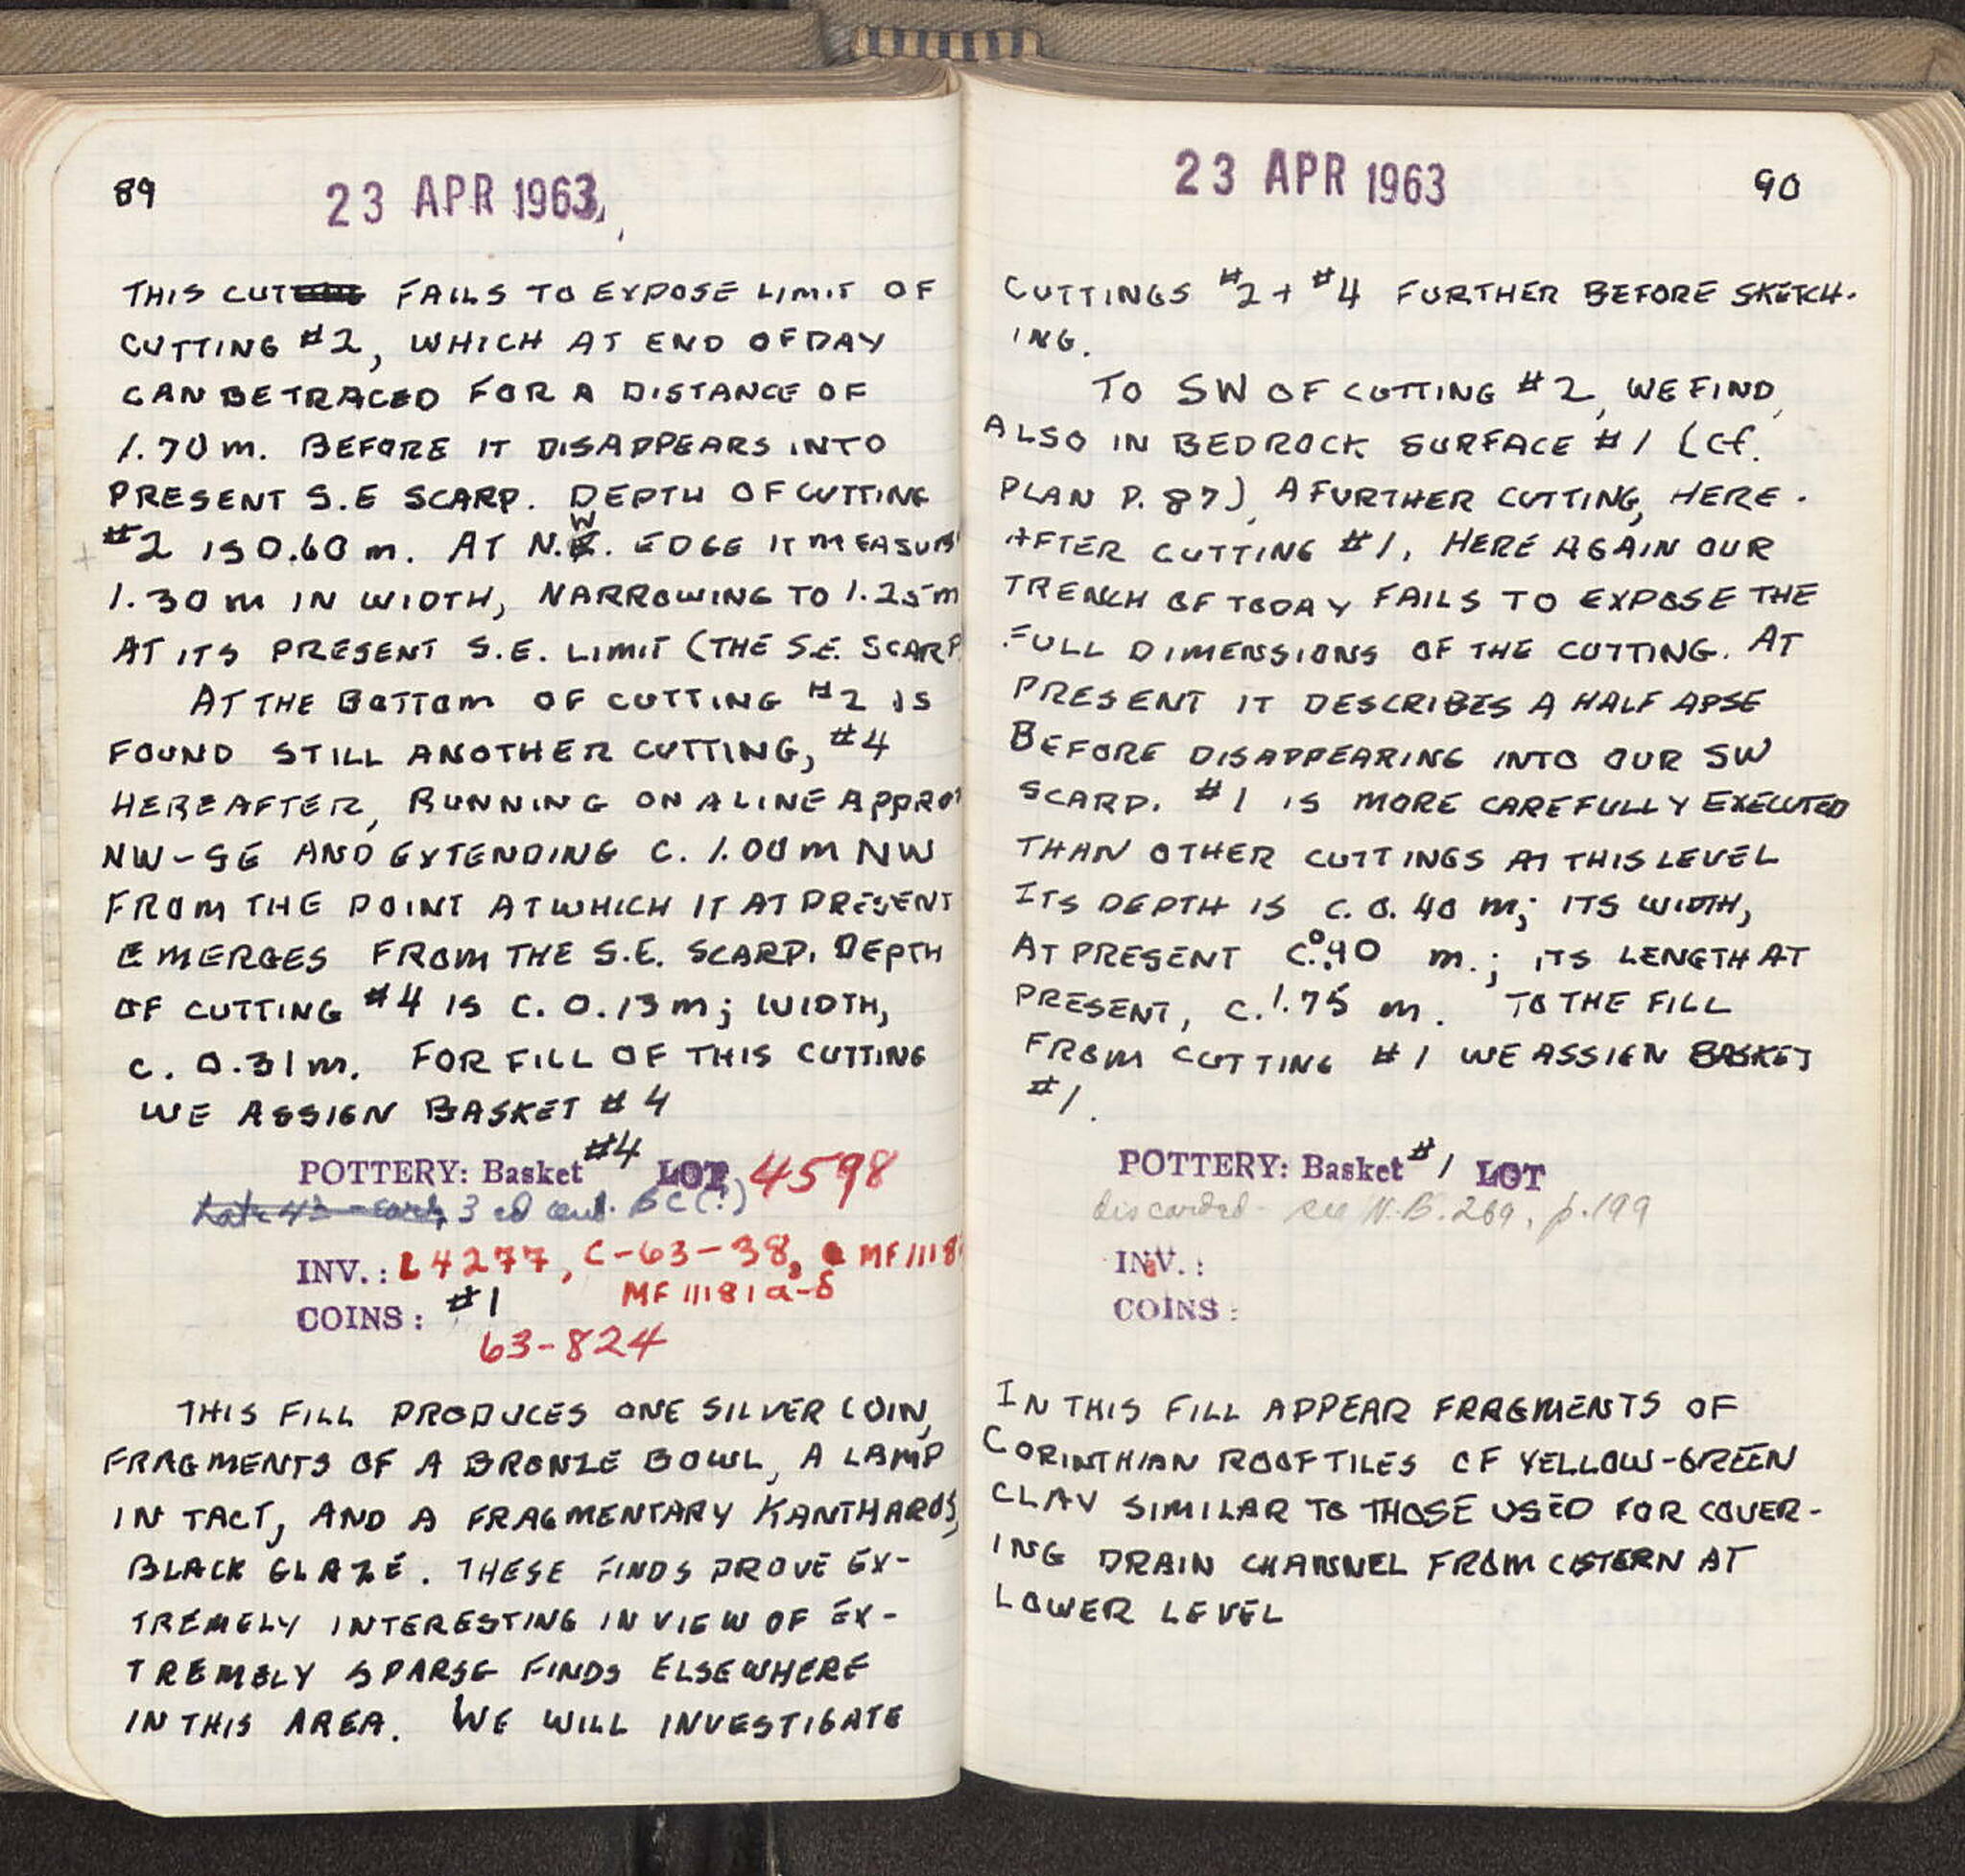 89
23 APR 1963
THIS CUT FAILS TO EXPOSE LIMIT OF
CUTTING #2, WHICH AT END OF DAY
CAN BE TRACED FOR A DISTANCE OF
1.70 m. BEFORE IT DISAPPEARS INTO
PRESENT S.E SCARP. DEPTH OF CUTTING
#2 IS 0.60 m. AT N.W. EDGE IT MEASURES
1.30 m IN WIDTH, NARROWING TO 1.25 m
AT ITS PRESENT S.E. LIMIT (THE S.E. SCARP
AT THE BOTTOM OF CUTTING #2 IS
FOUND STILL ANOTHER CUTTING, #4
HEREAFTER, RUNNING ON A LINE APPROX
NW-SE AND EXTENDING C. 1.00 m NW
FROM THE POINT AT WHICH IT AT PRESENT
EMERGES FROM THE S.E. SCARP. DEPTH
OF CUTTING #4 IS C. 0.13 m; WIDTH,
c. 0.31 m. FOR FILL OF THIS CUTTING
WE ASSIGN BASKET #4
POTTERY: Basket #4 LOT 4598
Late 4th - early 3rd cent. BC (?)
INV.: L4277, C-63-38, MF 1118
MF 11181 a-δ
COINS: #1
63-824
THIS FILL PRODUCES ONE SILVER COIN,
FRAGMENTS OF A BRONZE BOWL, A LAMP
IN TACT, AND A FRAGMENTARY KANTHAROS,
BLACK GLAZE. THESE FINDS PROVE EX-
TREMELY INTERESTING IN VIEW OF EX-
TREMELY SPARSE FINDS ELSEWHERE
IN THIS AREA. WE WILL INVESTIGATE
23 APR 1963
90
CUTTINGS #2 + #4 FURTHER BEFORE SKETCH-
ING.
TO SW OF CUTTING #2, WE FIND,
ALSO IN BEDROCK SURFACE #1 (cf.
PLAN P. 87), A FURTHER CUTTING, HERE-
AFTER CUTTING #1. HERE AGAIN OUR
TRENCH OF TODAY FAILS TO EXPOSE THE
FULL DIMENSIONS OF THE CUTTING. AT
PRESENT IT DESCRIBES A HALF APSE
BEFORE DISAPPEARING INTO OUR SW
SCARP. #1 IS MORE CAREFULLY EXECUTED
THAN OTHER CUTTINGS AT THIS LEVEL
ITS DEPTH IS C. 0.40 m; ITS WIDTH,
AT PRESENT C. 0.90 m.; ITS LENGTH AT
PRESENT, C. 1.75 m. TO THE FILL
FROM CUTTING #1 WE ASSIGN BASKET
#1.
POTTERY: Basket #1 LOT
discarded - see N.B. 269, p. 199
INV.:
COINS:
IN THIS FILL APPEAR FRAGMENTS OF
CORINTHIAN ROOFTILES OF YELLOW-GREEN
CLAY SIMILAR TO THOSE USED FOR COVER-
ING DRAIN CHANNEL FROM CISTERN AT
LOWER LEVEL